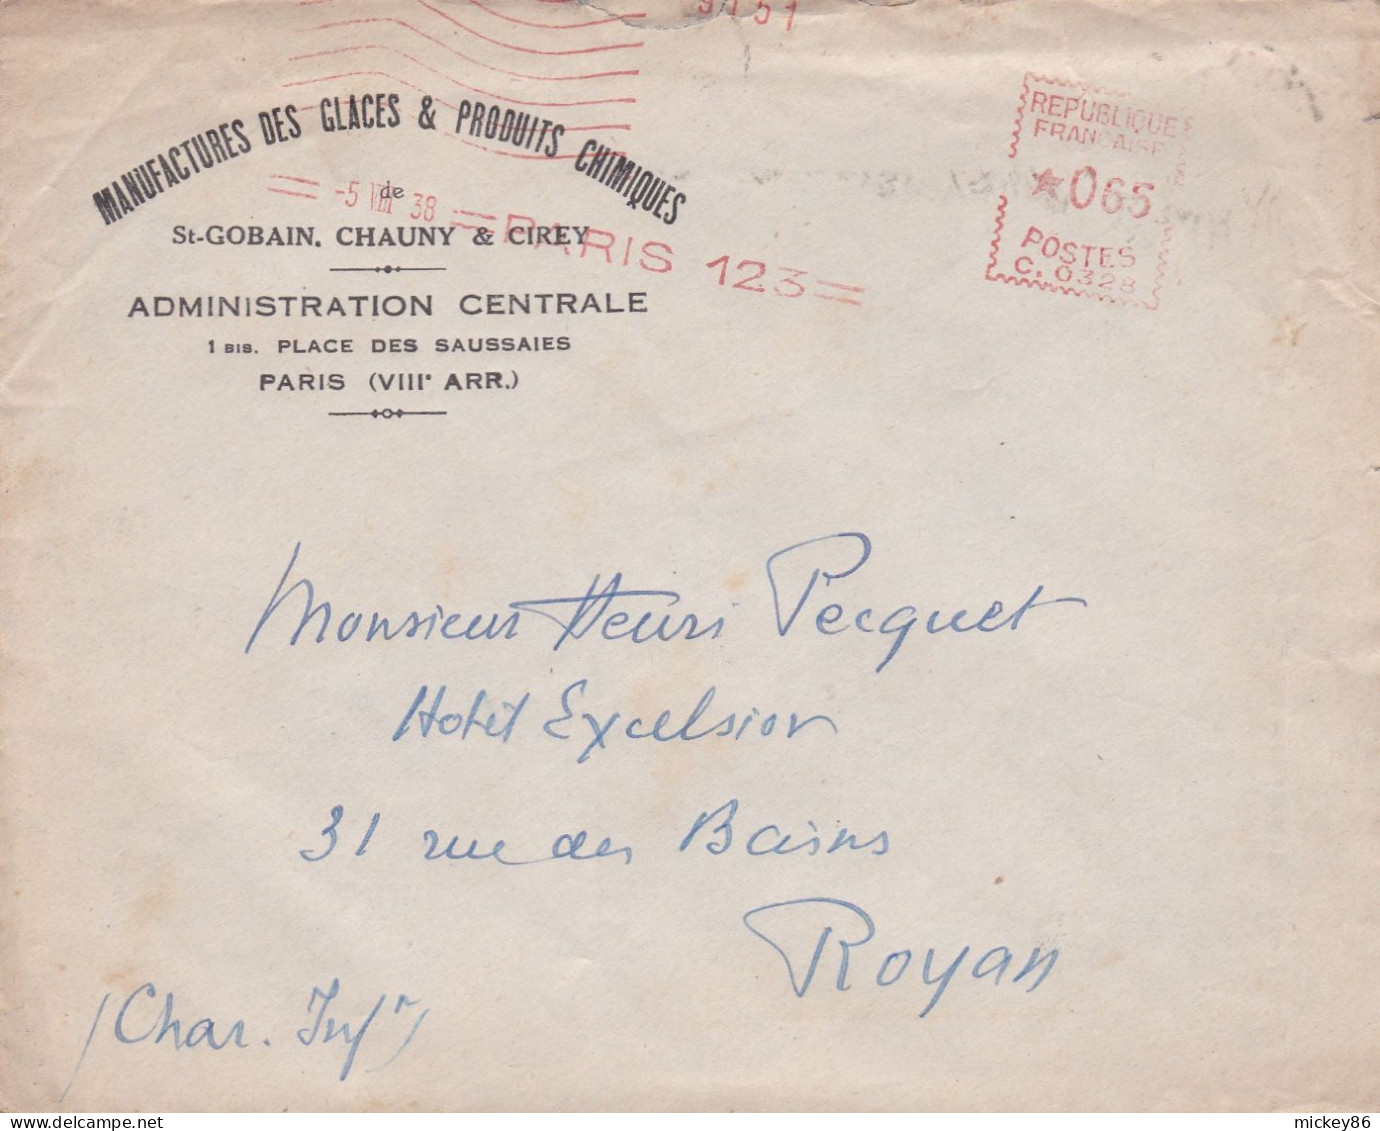 9151
MANUFACTURES DES GLACES & PRODUITS CHIMIQUES
de
St-GOBAIN, CHAUNY & CIREY
ADMINISTRATION CENTRALE
1 BIS. PLACE DES SAUSSAIES
PARIS (VIIIe ARR.)
-5 VIII 38
PARIS 123
REPUBLIQUE
FRANCAISE
★065
POSTES
C. 0328
Monsieur Henri Pecquet
Hotel Excelsior
31 rue des Bains
Royan
(Char. Infr)
mickey86